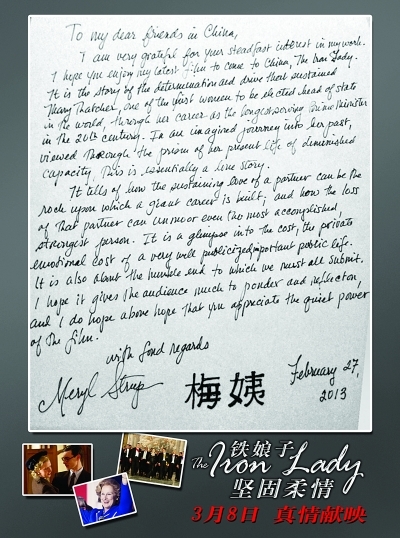 To my dear friends in China,
I am very grateful for your steadfast interest in my work.
I hope you enjoy my latest film to come to China, The Iron Lady.
It is the story of the determination and drive that sustained
Mary Thatcher, one of the first women to be elected head of state
in the world, through her career as the longest-serving Prime Minister
in the 20th century. In an imagined journey into her past,
viewed through the prism of her present life of diminished
capacity, this is essentially a love story.
It tells of how the sustaining love of a partner can be the
rock upon which a giant career is built; and how the loss
of that partner can unmoor even the most accomplished,
strongest person. It is a glimpse into the cost, the private
emotional cost of a very well publicized, important public life.
It is also about the humble end to which we must all submit.
I hope it gives the audience much to ponder and reflection,
and I do hope above hope that you appreciate the quiet power
of the film.
with fond regards
Meryl Streep
梅姨
February 27,
2013
铁娘子
The Iron Lady
坚固柔情
3月8日 真情献映